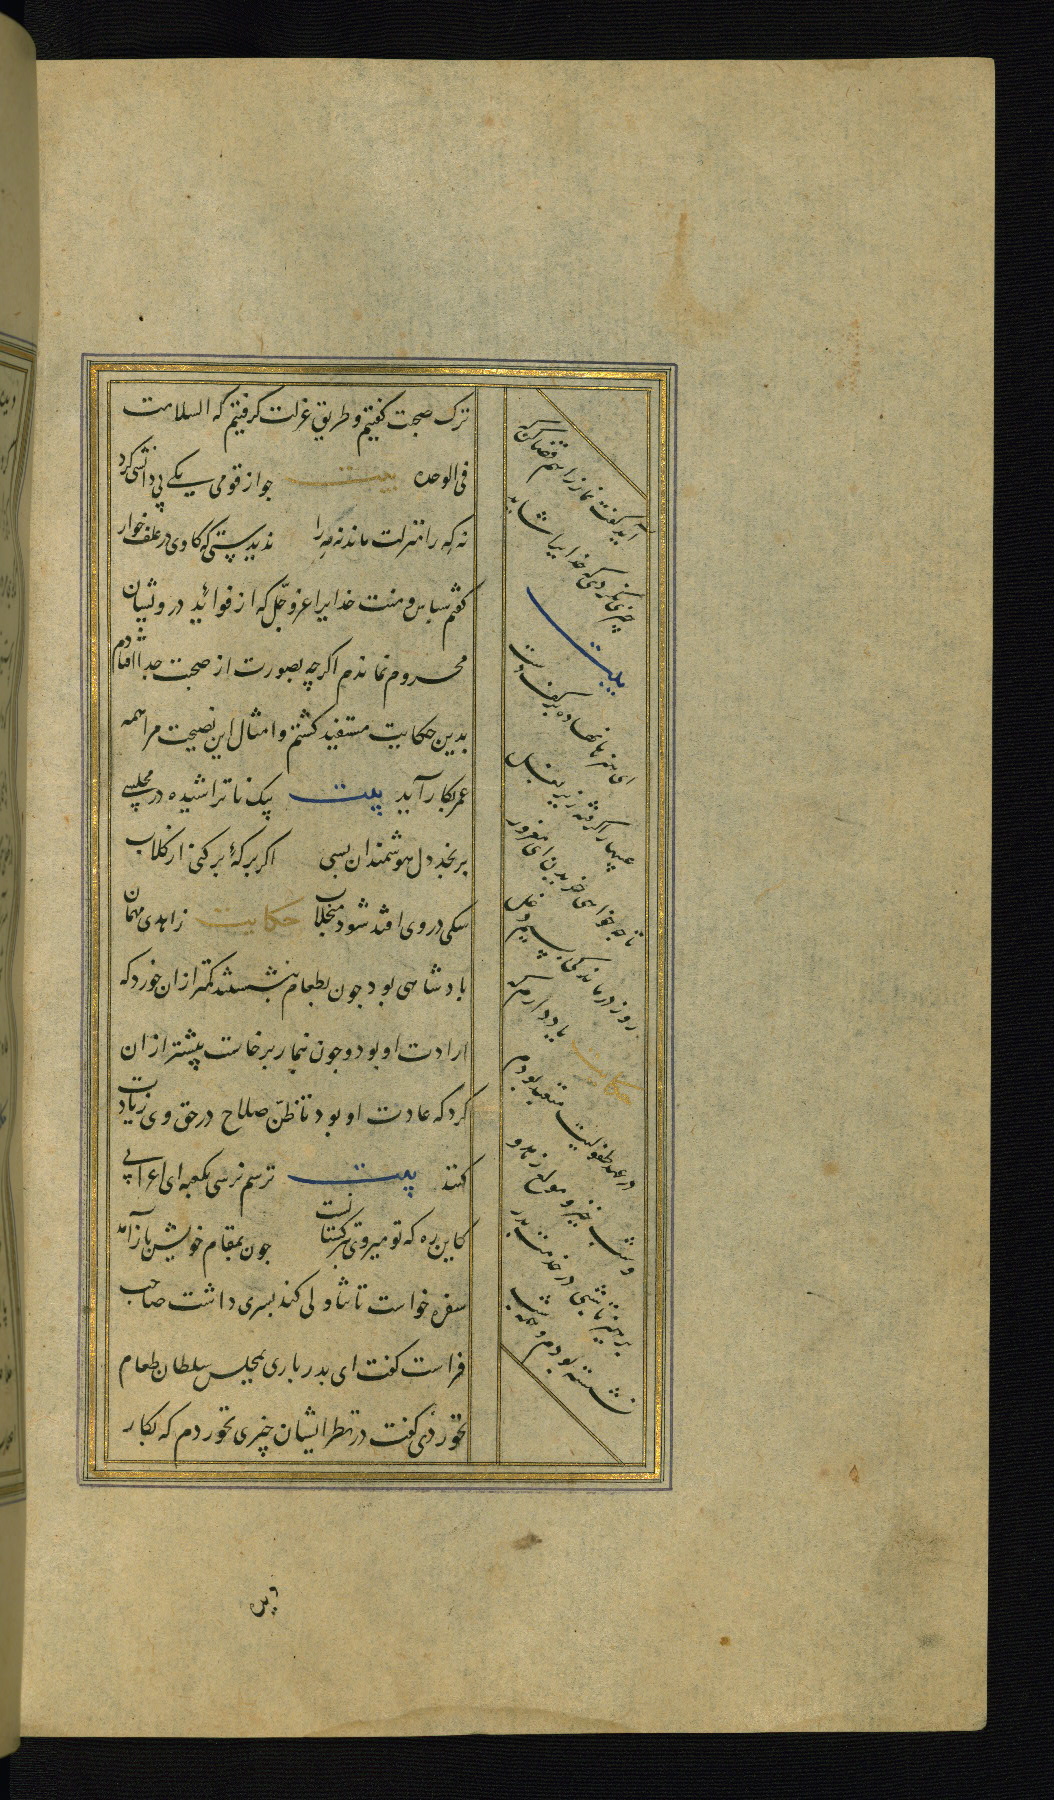 ترک صحبت کفتیم و طریق عزلت کرفتیم که السلامت
فی الوحده بیت جو از قومی یکی بی دانشی کرد
نه که را منزلت ماند نه مه را ندیدستی که کاوی در علف خوار
کفتم سباس و منت خدایرا عز و جل که از فوائد درویشان
محروم نماندم اکرچه بصورت از صحبت جدا افتادم
بدین حکایت مستفید کشتم و امثال این نصیحت مرا همه
عمر بکار آید بیت یک ناتراشیده در مجلسی
برنجد دل هوشمندان بسی اکر برکهٔ بر کنی از کلاب
سکی در وی افتد شود منجلاب حکایت زاهدی مهمان
بادشاهی بود جون بطعام بنشستند کمتر از ان خورد که
ارادت او بود و جون بنماز برخاست بیشتر از ان
کرد که عادت او بود تا ظن صلاح در حق وی زیادت
کنند بیت ترسم نرسی بکعبه ای اعرابی
کاین ره که تو میروی بترکستانست جون بمقام خویش باز آمد
سفره خواست تا تناولی کند بسری داشت صاحب
فراست کفت ای بدر باری بمجلس سلطان طعام
نخوردی کفت در نظر ایشان چیزی نخوردم که بکار
آید کفت نماز را هم قضا کن که
چیزی نکردی که خدایرا شاید
بیت
ای هنرها نهاده بر کف دست
عیبها را کرفته زیر بغل
تا جه خواهی خریدن ای مغرور
روز درماندکی بسیم دغل
حکایت یاد دارم که
در عهد طفولیت متعبد بودم
و شب خیز و مولع زهد و
برهیز تا شبی در خدمت بدر
نشسته بودم و همه شب